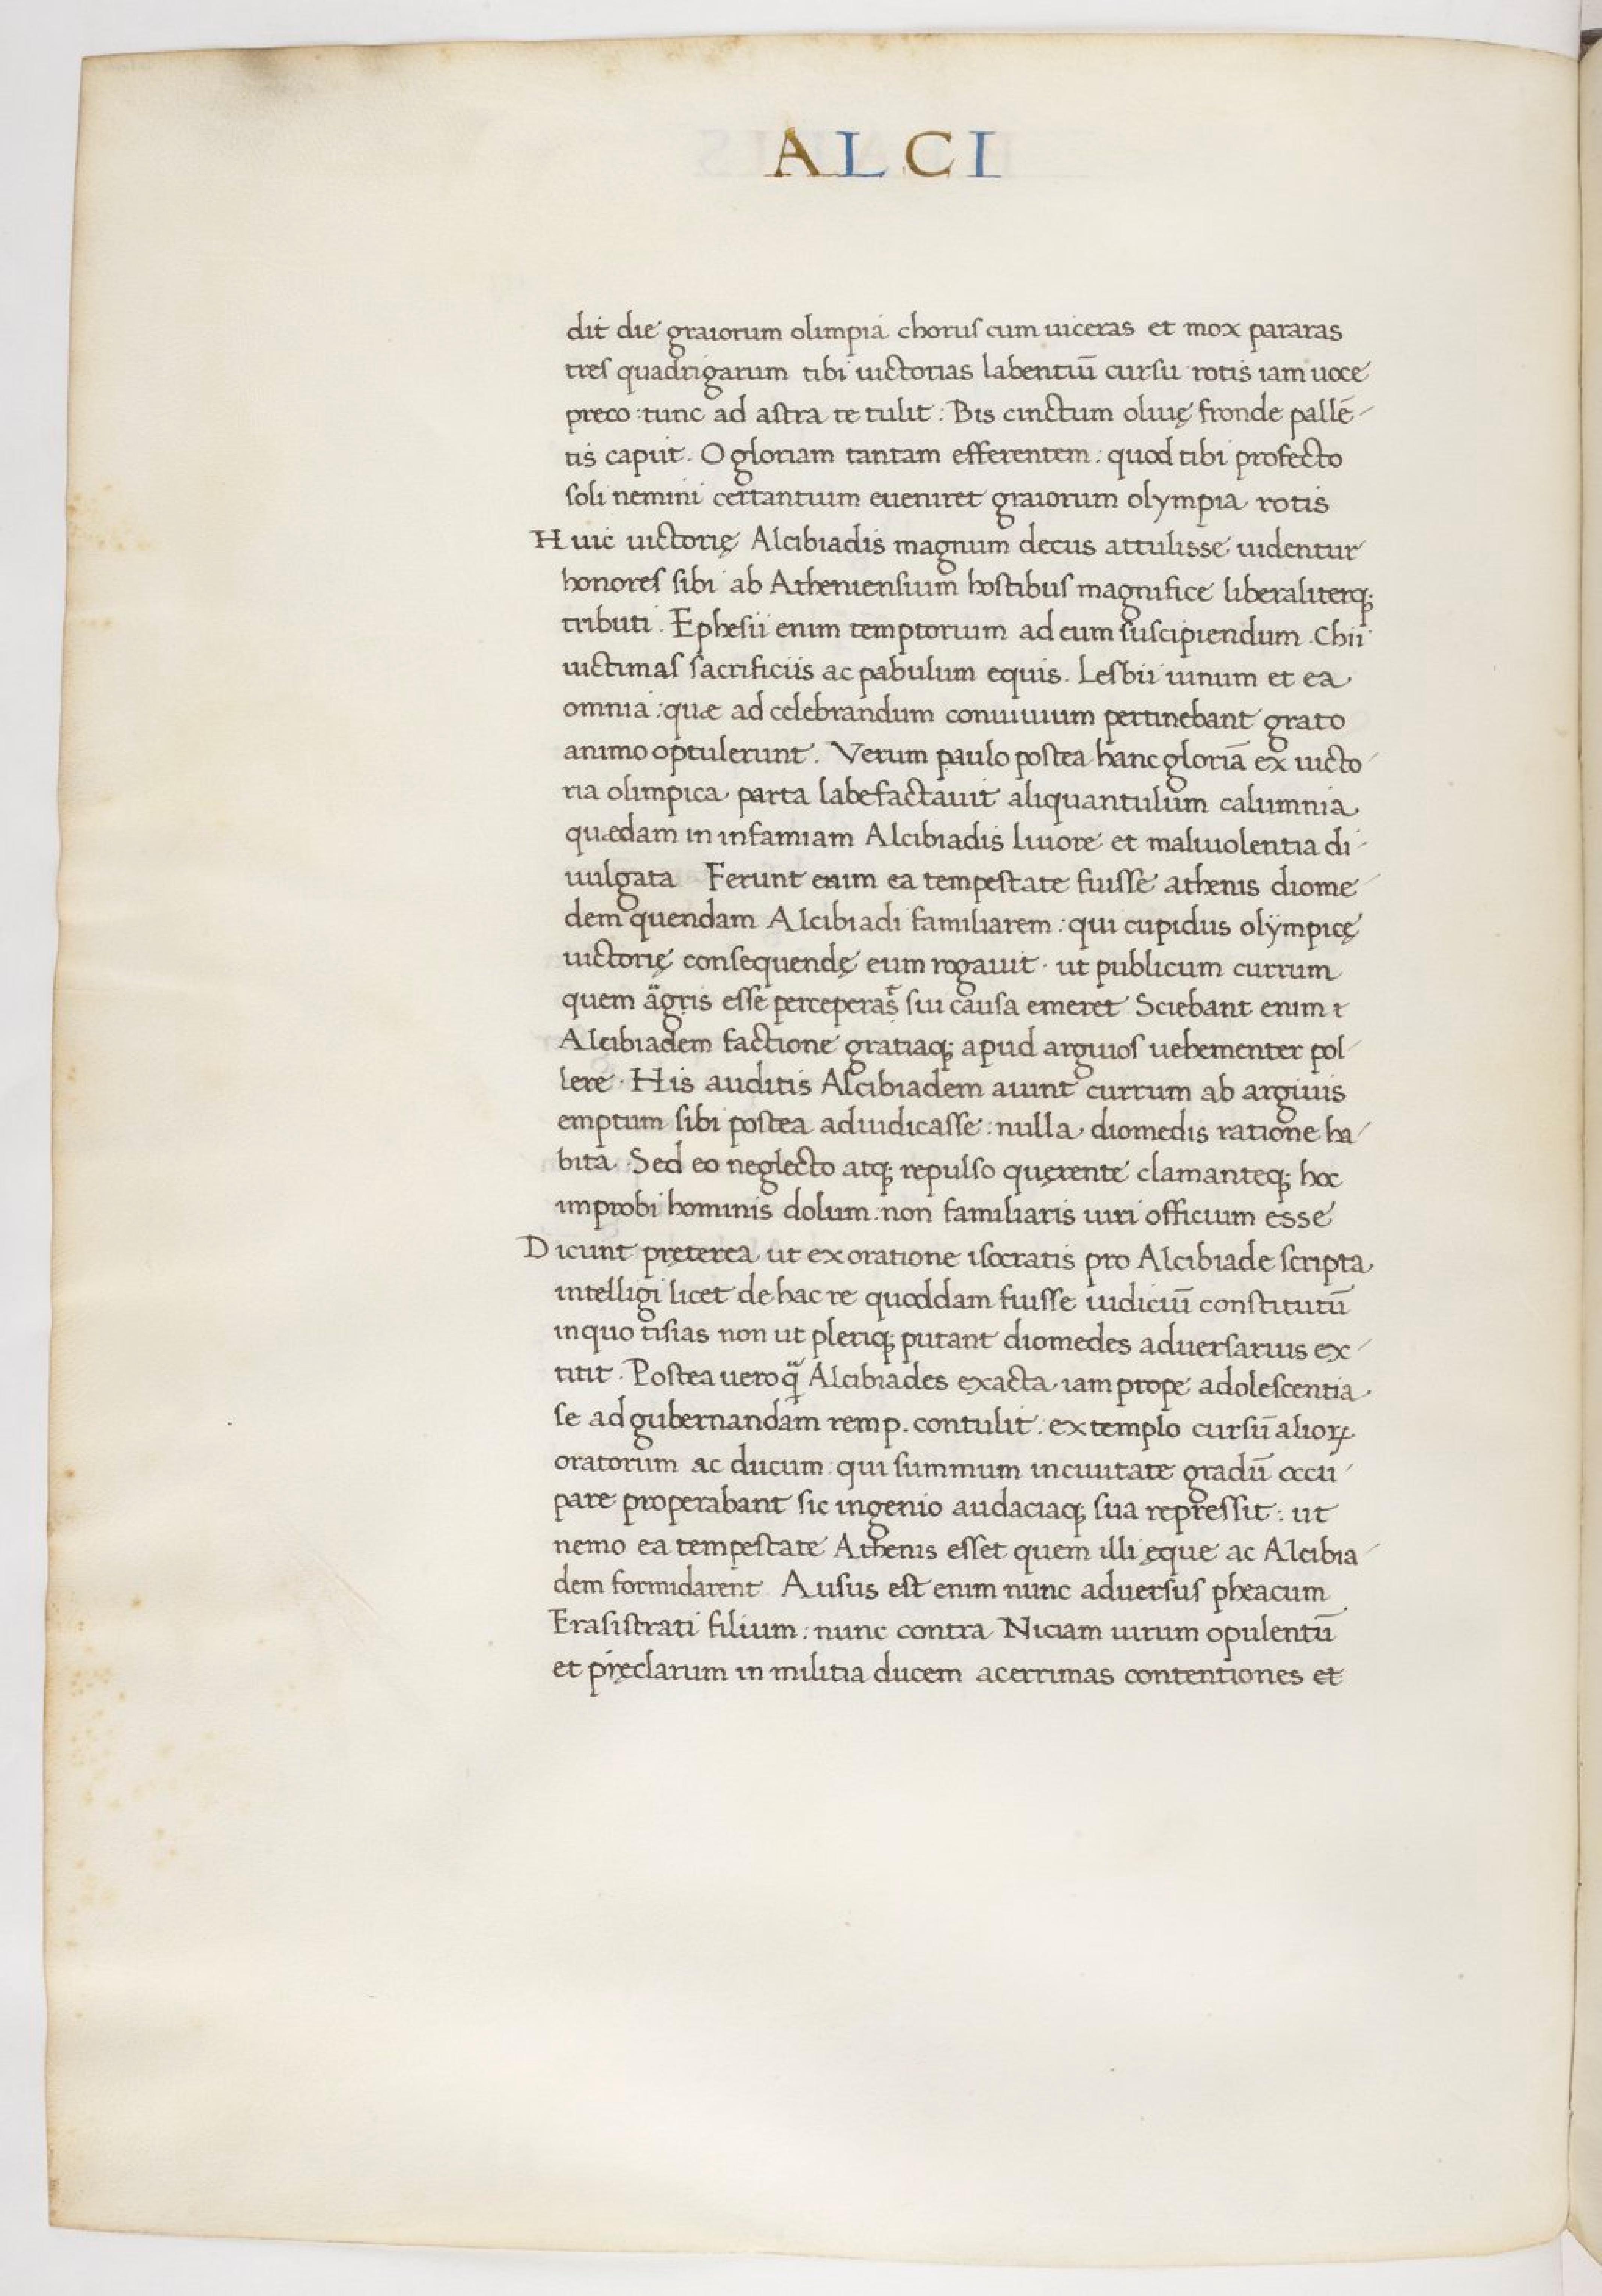 ALCI
dit die graiorum olimpia chorus cum uiceras et mox pararas
tres quadrigarum tibi uictorias labentiū cursu rotis iam uoce
preco : tunc ad astra te tulit : Bis cinctum oliuę fronde pallē-
tis caput. O gloriam tantam efferentem : quod tibi profecto
soli nemini certantium eueniret graiorum olympia rotis
Huic uictorię Alcibiadis magnum decus attulisse uidentur
honores sibi ab Atheniensium hostibus magnifice liberaliterq;
tributi. Ephesii enim temptorium ad eum suscipiendum. Chii
uictimas sacrificiis ac pabulum equis. Lesbii uinum et ea
omnia : quæ ad celebrandum conuiuium pertinebant grato
animo optulerunt. Verum paulo postea hanc gloriā ex uicto-
ria olimpica parta labefactauit aliquantulum calumnia
quædam in infamiam Alcibiadis liuore et maliuolentia di-
uulgata Ferunt enim ea tempestate fuisse athenis diome-
dem quendam Alcibiadi familiarem : qui cupidus olympicę
uictorię consequendę eum rogauit · ut publicum currum
quem agris esse perceperat sui causa emeret Sciebant enim
Alcibiadem factione gratiaq; apud argiuos uehementer pol-
lere. His auditis Alcibiadem aiunt currum ab argiuis
emptum sibi postea adiudicasse : nulla diomedis ratione ha-
bita. Sed eo neglecto atq; repulso quęrente clamanteq; hoc
improbi hominis dolum. non familiaris uiri officium esse
Dicunt pręterea ut ex oratione isocratis pro Alcibiade scripta
intelligi licet de hac re quoddam fuisse iudiciū constitutū
in quo tisias non ut pleriq; putant diomedes aduersarius ex-
titit. Postea uero q̃ Alcibiades exacta iam prope adolescentia
se ad gubernandam remp. contulit. extemplo cursū alioꝝ
oratorum ac ducum : qui summum in ciuitate gradū occu-
pare properabant sic ingenio audaciaq; sua repressit : ut
nemo ea tempestate Athenis esset quem illi ęque ac Alcibia-
dem formidarent Ausus est enim nunc aduersus pheacum
Erasistrati filium : nunc contra Niciam uirum opulentū
et pręclarum in militia ducem acerrimas contentiones et